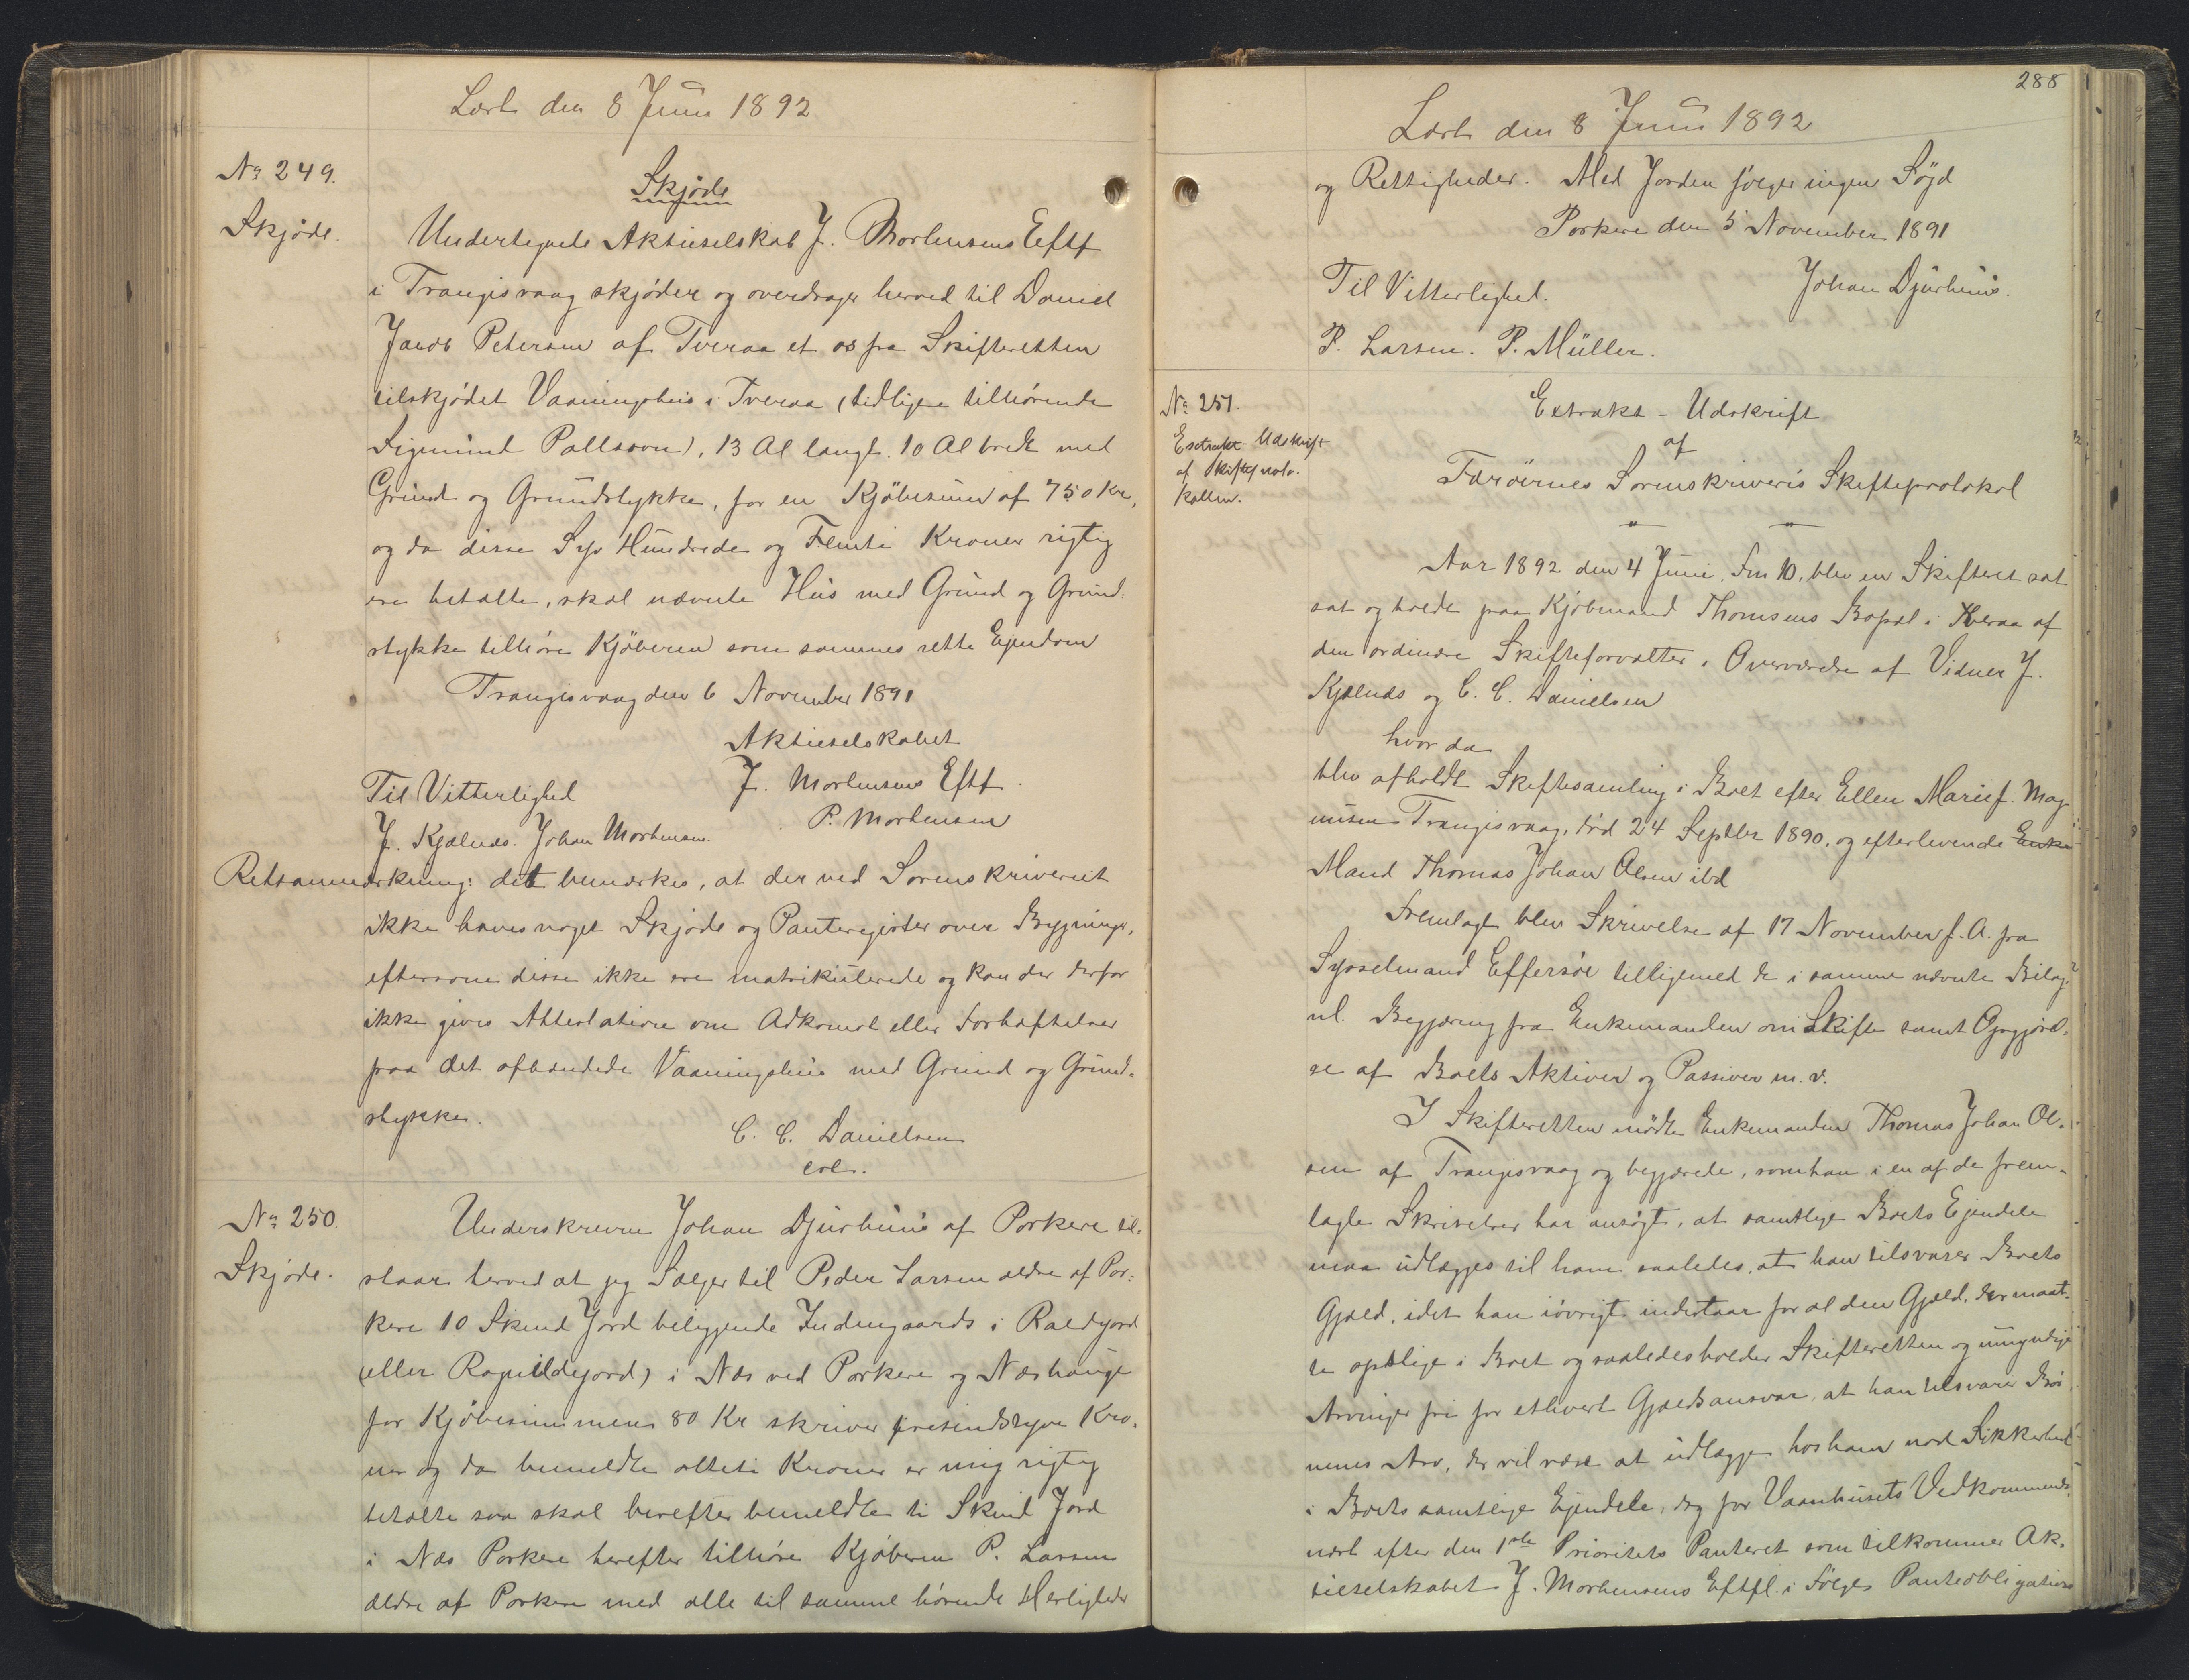 Læst den 8 Juni 1892
No 249.
Skjøde.
Skjøde
Undertegnede Aktieselskab J. Mortensens Eftf
i Trangisvaag skjøder og overdrager herved til Daniel
Jacob Petersen af Tveraa et os fra Skifteretten
tilskjødet Vaaningshus i Tveraa (tidligere tilhørende
Sigmund Pallsson), 13 Al langt. 10 Al bredt med
Grund og Grundstykke, for en Kjøbesum af 750 Kr,
og da disse Syv Hundrede og Femti Kroner rigtig
ere betalte, skal nævnte Hus med Grund og Grund-
stykke tilhøre Kjøberen som sammes rette Ejendom
Trangisvaag den 6 November 1891
Aktieselskabet
J. Mortensens Eftf.
P. Mortensen
Til Vitterlighed
J. Kjølnæs. Johan Mortensen.
Retsanmærkning: det bemærkes, at der ved Sorenskriveriet
ikke haves noget Skjøde og Panteregister over Bygninger,
eftersom disse ikke ere matrikulerede og kan der derfor
ikke gives Attestation om Adkomst eller Forhæftelser
paa det afhændede Vaaningshus med Grund og Grund-
stykke.
C. C. Danielsen
cst.
No 250.
Skjøde.
Underskrevne Johan Djurhuus af Porkere til-
staar herved at jeg Sælger til Peder Larsen ældre af Por-
kere 10 Skind Jord beliggende Indengaards i
(eller ) i Næs ved Porkere og Næshauge
for Kjøbesummen 80 Kr skriver firesindstyve Kro-
ner og da bemeldte otteti Kroner er mig rigtig
betalte saa skal herefter bemeldte ti Skind Jord
i Næs Porkere herefter tilhøre Kjøberen P. Larsen
ældre af Porkere med alle til samme hørende Herligheder
288
Læst den 8 Juni 1892
og Rettigheder. Med Jorden følger ingen Søjd
Porkere den 5 November 1891
Til Vitterlighed.
Johan Djurhuus.
P. Larsen. P. Müller.
No 251.
Extrakt-Udskrift
af Skifteproto-
kollen.
Extrakt-Udskrift
af
Færøernes Sorenskriveris Skifteprotokol
Aar 1892 den 4 Juni, Fm 10, blev en Skifteret sat
sat og holdt paa Kjøbmand Thomsens Bopæl i Tveraa af
den ordinære Skifteforvalter i Overværelse af Vidner J.
Kjølnæs og C. C. Danielsen
hvor da
blev afholdt Skiftesamling i Boet efter Ellen Marie f. Mag-
nussen Trangisvaag, død 24 Septbr 1890, og efterlevende Enke
Mand Thomas Johan Olsen ibd
Fremlagt blev Skrivelse af 17 November f. A. fra
Sysselmand Effersøe tilligemed de i samme nævnte Bilag,
nl. Begjæring fra Enkemanden om Skifte samt Opgjørel-
se af Boets Aktiver og Passiver m. v.
I Skifteretten mødte Enkemanden Thomas Johan Ol-
sen af Trangisvaag og begjærede, som han i en af de frem-
lagte Skrivelser har ansøgt, at samtlige Boets Ejendele
maa udlægges til ham saaledes, at han tilsvarer Boets
Gjæld, idet han iøvrigt indestaar for al den Gjæld, der maat-
te opstige i Boet og saaledes holder Skifteretten og umyndige
Arvinger fri for ethvert Gjældsansvar, at han tilsvarer Bør-
nenes Arv, der vil være at udlægge hos ham mod Sikkerhed
i Boets samtlige Ejendele, dog for Vaanhusets Vedkommende
næst efter den 1ste Prioritets Panteret som tilkommer Ak-
tieselskabet J. Mortensens Eftfl. i Følge Panteobligation